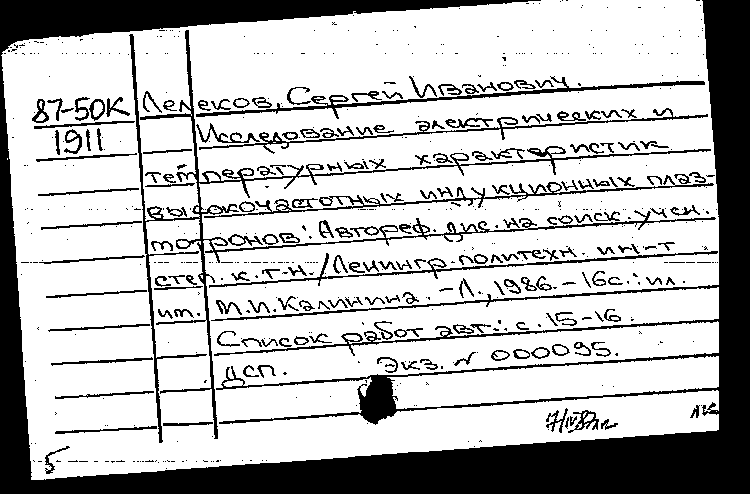 87-50К Лелеков, Сергей Иванович.
1911 Исследование электрических и
температурных характеристик
высокочастотных индукционных плаз-
мотронов: Автореф. дис. на соиск. учен.
степ. к.т.н. / Ленингр. политехн. ин-т
им. М.И. Калинина. - Л., 1986. - 16с.: ил.
Список работ авт.: с. 15-16.
ДСП. Экз. N 000095.
5